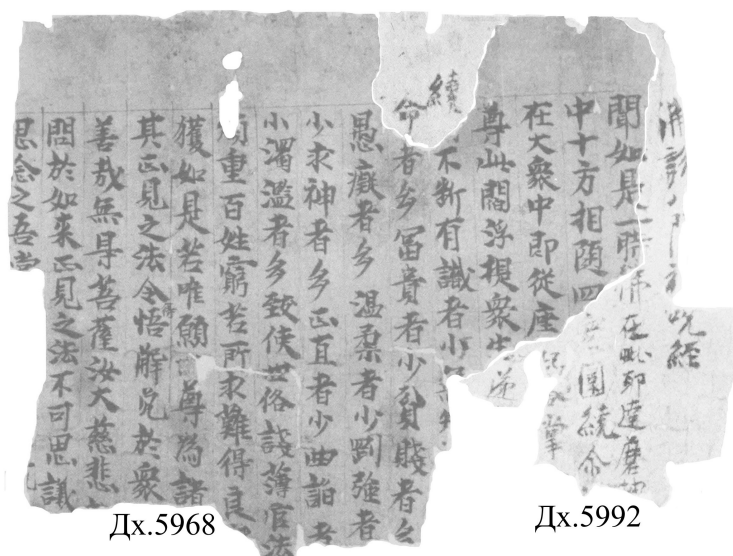 呪經
聞如是一時佛在毗耶達磨城
中十方相隨四衆圍繞
在大衆中即從座
尊此閻浮提衆生遞
續不斷有識者小
命者多冨貴者少貧賤者多
愚癡者多温柔者少剛強者
少求神者多正直者少曲諂者
小濁濫者多致使世俗淺薄官法
煩重百姓窮苦所求難得良
獲如是苦唯願尊為諸
其正見之法令得悟解免於衆
善哉無㝵菩薩汝大慈悲
問於如來正見之法不可思議
思念之吾當
Дх.5968
Дх.5992